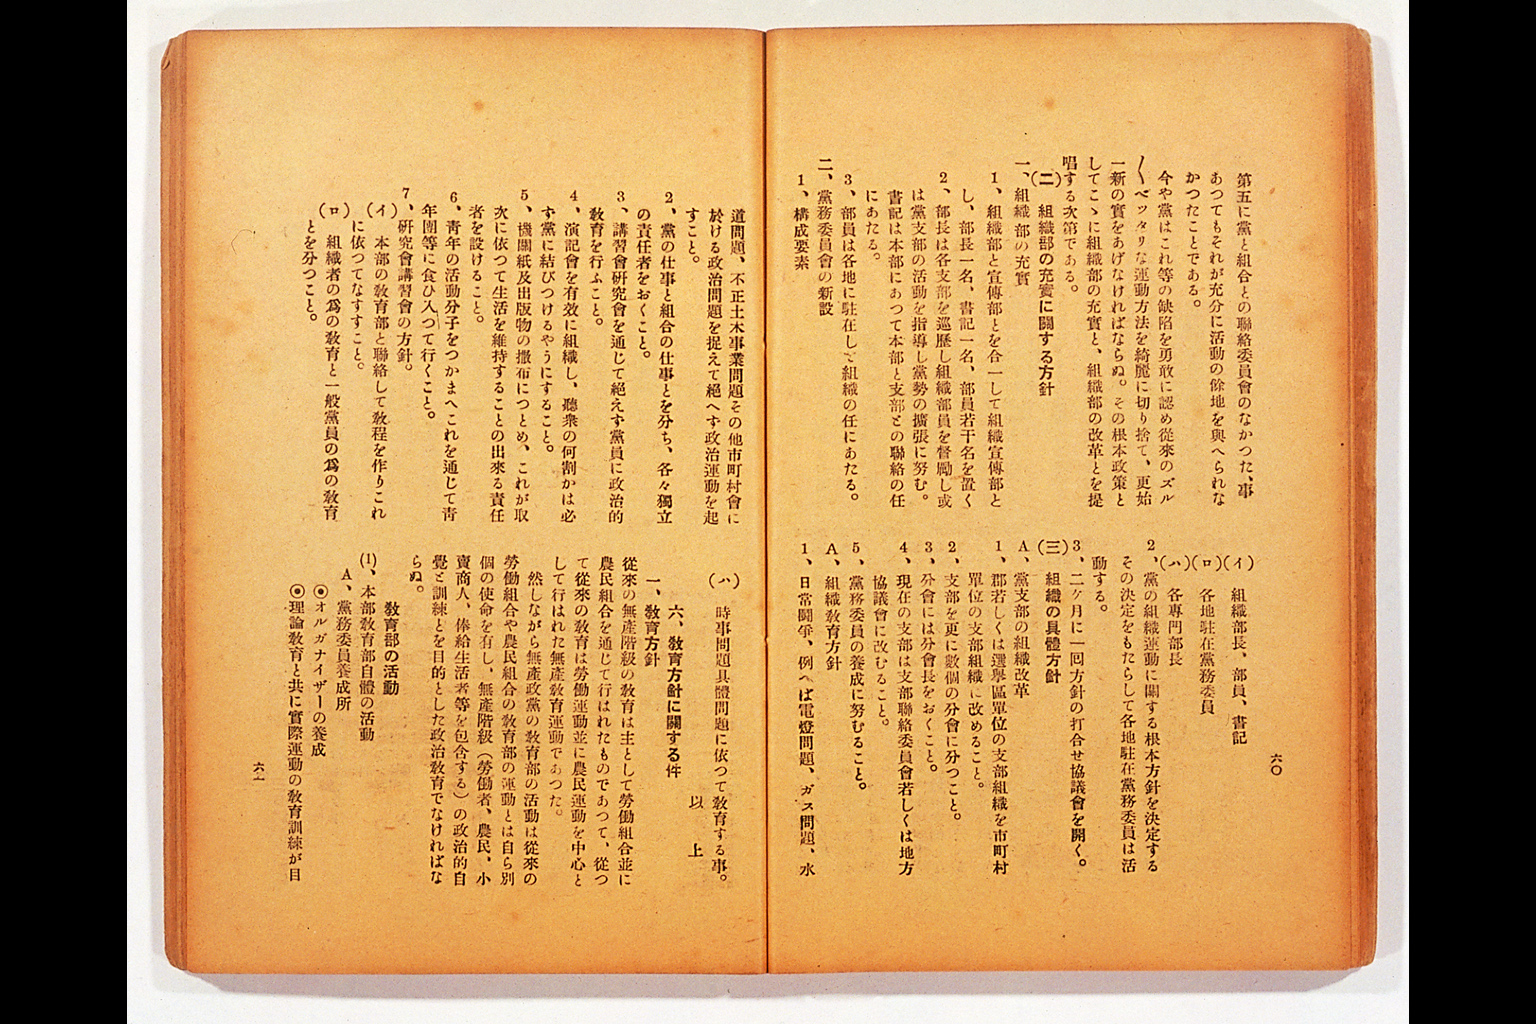 第五に黨と組合との聯絡委員會のなかつた、事
あつてもそれが充分に活動の餘地を與へられな
かつたことである。
今や黨はこれ等の缺陷を勇敢に認め從來のズル
〳〵ベツタリな運動方法を綺麗に切り捨て、更始
一新の實をあげなければならぬ。その根本政策と
してこゝに組織部の充實と、組織部の改革とを提
唱する次第である。
(二) 組織部の充實に關する方針
一、組織部の充實
1、組織部と宣傳部とを合一して組織宣傳部と
し、部長一名、書記一名、部員若干名を置く
2、部長は各支部を巡歷し組織部員を督勵し或
は黨支部の活動を指導し黨勢の擴張に努む。
書記は本部にあつて本部と支部との聯絡の任
にあたる。
3、部員は各地に駐在して組織の任にあたる。
二、黨務委員會の新設
1、構成要素
(イ) 組織部長、部員、書記
(ロ) 各地駐在黨務委員
(ハ) 各專門部長
2、黨の組織運動に關する根本方針を決定する
その決定をもたらして各地駐在黨務委員は活
動する。
3、二ケ月に一回方針の打合せ協議會を開く。
(三) 組織の具體方針
A、黨支部の組織改革
1、郡若しくは選擧區單位の支部組織を市町村
單位の支部組織に改めること。
2、支部を更に數個の分會に分つこと。
3、分會には分會長をおくこと。
4、現在の支部は支部聯絡委員會若しくは地方
協議會に改むること。
5、黨務委員の養成に努むること。
A、組織敎育方針
1、日常鬪爭、例へば電燈問題、ガス問題、水
六〇
道問題、不正土木事業問題その他市町村會に
於ける政治問題を捉えて絕へす政治運動を起
すこと。
2、黨の仕事と組合の仕事とを分ち、各々獨立
の責任者をおくこと。
3、講習會硏究會を通じて絕えす黨員に政治的
敎育を行ふこと。
4、演記會を有效に組織し、聽衆の何割かは必
す黨に結びつけるやうにすること。
5、機關紙及出版物の撒布につとめ、これが取
次に依つて生活を維持することの出來る責任
者を設けること。
6、靑年の活動分子をつかまへこれを通じて靑
年團等に食ひ入つて行くこと。
7、硏究會講習會の方針。
(イ) 本部の敎育部と聯絡して敎程を作りこれ
に依つてなすすこと。
(ロ) 組織者の爲の敎育と一般黨員の爲の敎育
とを分つこと。
(ハ) 時事問題具體問題に依つて敎育する事。
以上
六、敎育方針に關する件
一、敎育方針
從來の無產階級の敎育は主として勞働組合並に
農民組合を通じて行はれたものであつて、從つ
て從來の敎育は勞働運動並に農民運動を中心と
して行はれた無產敎育運動であつた。
然しながら無產政黨の敎育部の活動は從來の
勞働組合や農民組合の敎育部の運動とは自ら別
個の使命を有し、無產階級(勞働者、農民、小
賣商人、俸給生活者等を包含する)の政治的自
覺と訓練とを目的とした政治敎育でなければな
らぬ。
敎育部の活動
(1)、本部敎育部自體の活動
A、黨務委員養成所
◉オルガナイザーの養成
◉理論敎育と共に實際運動の敎育訓練が目
六一